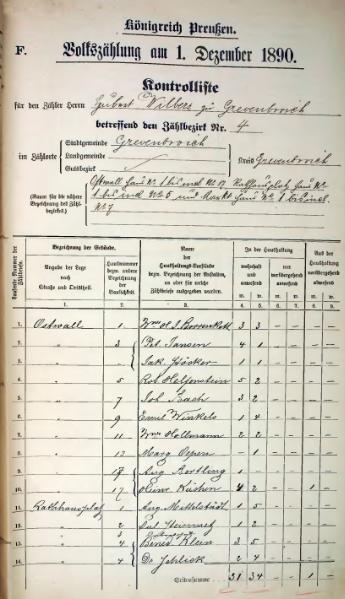 Königreich Preußen.
F. Volkszählung am 1. Dezember 1890.
Kontrolliste
für den Zähler Herrn Hubert Wilbers zu Grevenbroich
betreffend den Zählbezirk Nr. 4
im Zählorte
Stadtgemeinde Grevenbroich
Landgemeinde
Gutsbezirk
Kreis Grevenbroich
(Raum für die nähere Bezeichnung des Zählbezirks.)
Ostwall Haus No 1 bis incl. No 17 Rathausplatz Haus No
1 bis incl. No 5 und Markt Haus No 1 bis incl.
No 7
Laufende Nummer der Zählbriefe.
Bezeichnung der Gebäude.
Angabe der Lage nach Straße und Ortsteil.
Hausnummer
Name
der
Haushaltungs-Vorstände
bezw. Bezeichnung der Anstalten,
an oder für welche
Zählbriefe ausgegeben wurden.
In der Haushaltung
wohnhaft und anwesend
vorübergehend anwesend
Aus der Haushaltung vorübergehend abwesend
m. w. m. w. m. w.
1. 2. 3. 4. 5. 6. 7. 8. 9.
1. Ostwall 1 3 3 – – – –
2. " 3 Pet. Jansen 4 1 – – – –
3. Jak. 1 1 – – – –
4. " 5 Rob. Helfenstein 5 2 – – – –
5. " 7 Joh. Bach 3 2 – – – –
6. " 9 Emil Winkels 1 4 – – – –
7. " 11 Wwe Hollmann 2 2 – – – –
8. " 13 Marg. 1 – – – – –
9. " 17 Aug. Bortling 1 – – – – –
10. " 17 Heinr. Küchen 4 2 – – 1 –
11. Rathhausplatz 1 Aug. Mittelstädt 1 5 – – – –
12. " 2 – – – –
13. " 4 Klein 3 5 – – – –
14. " 4 Dr. Schlick 2 4 – – – –
Seitensumme 31 34 – – 1 –